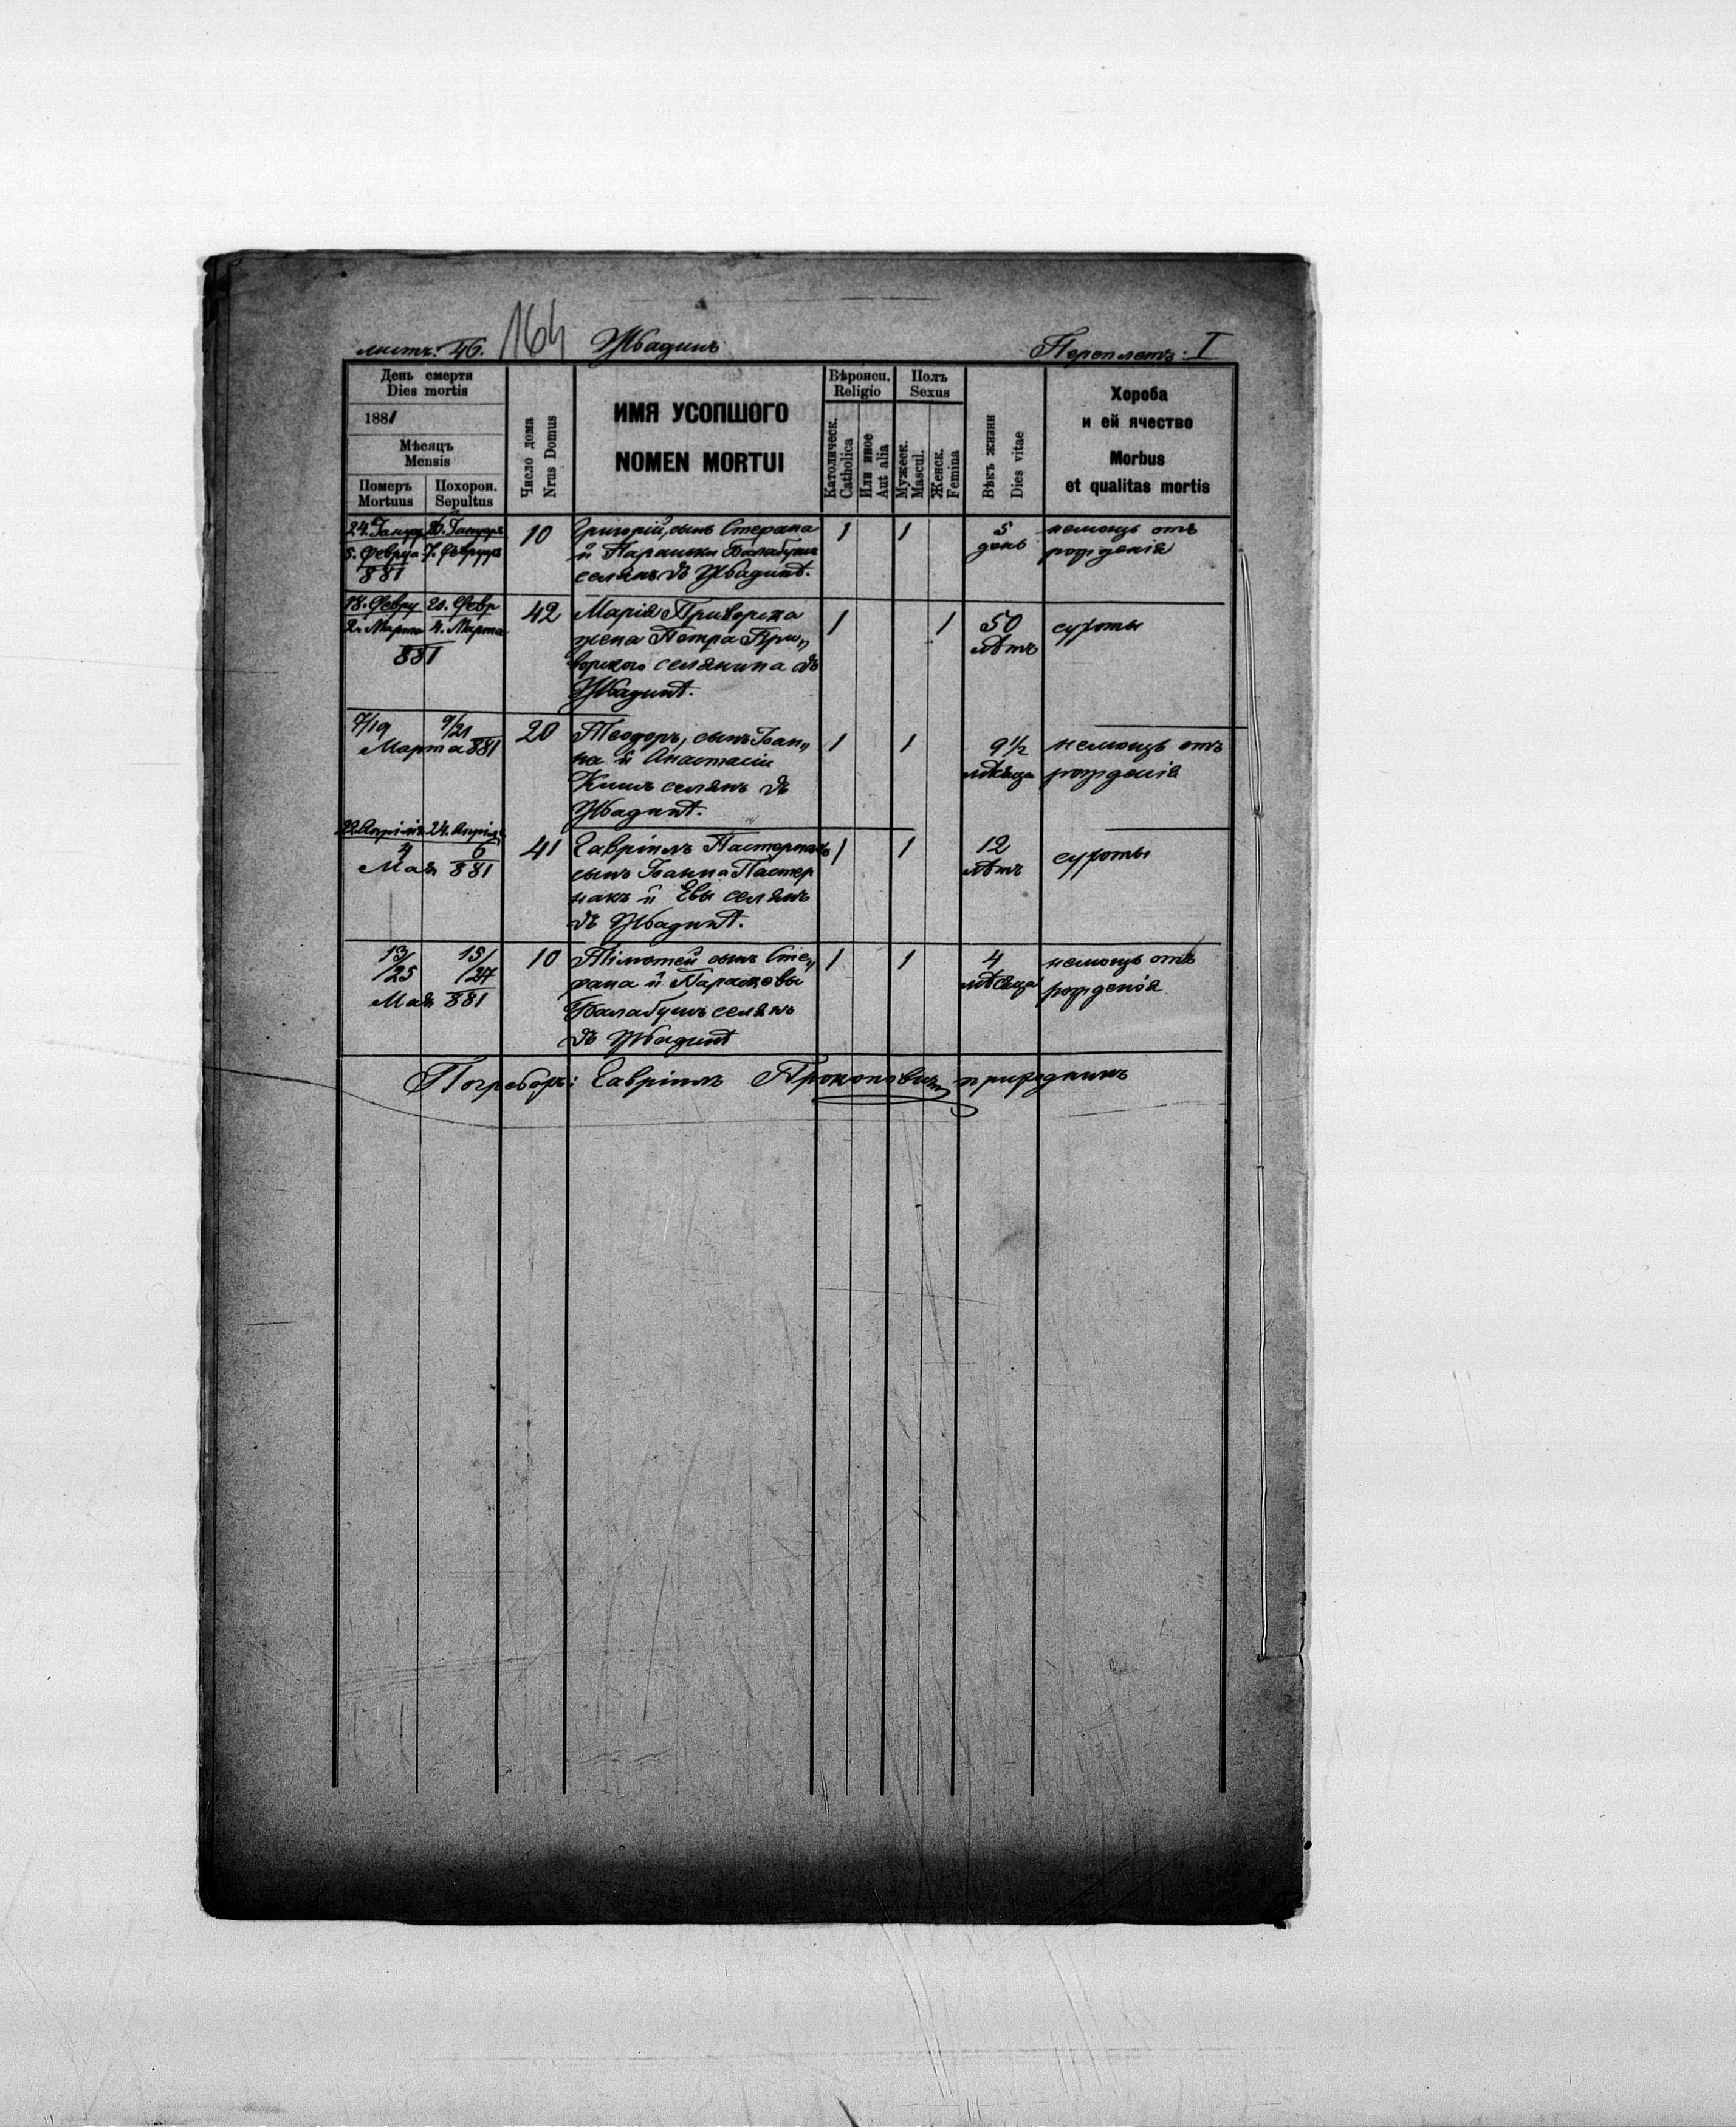 листъ: 46. 164 Ждадинъ Переплетъ: I
День смерти
Dies mortis
1881
Мѣсяцъ
Mensis
Померъ
Mortuus
Похорон.
Sepultus
Число дома
Nrus Domus
ИМЯ УСОПШОГО
NOMEN MORTUI
Вѣроисп.
Religio
Католическ.
Catholica
Или иное
Aut alia
Полъ
Sexus
Мужеск.
Mascul.
Женск.
Femina
Вѣкъ жизни
Dies vitae
Хороба
и ей ячество
Morbus
et qualitas mortis
24. Януар 26. Януаря 10 Григорій, сынъ Стефана 1 1 5 немощь отъ
5. Февруа 7. Февруар и Параньки Балабушъ день рожденія
881 селянъ въ
18. Февру 20. Февр 42 Марія Приворска 1 1 50 сухоты
2. Марта 4. Марта жена Петра При„ лѣтъ
881 ворского селянина въ
7/19 9/21 20 Теодоръ, сынъ Іоан„ 1 1 9 1/2 немощь отъ
Марта 881 на и Анастасіи мѣсяца рожденія
селянъ въ
22. Апріля 24. Апріля
4 6 41 Гавріилъ Пастернакъ 1 1 12 сухоты
Мая 881 сынъ Іоанна Пастер лѣтъ
накъ и Евы селянъ
въ
13/25 15/27 10 Тімотей сынъ Сте„ 1 1 4 немощь отъ
Мая 881 фана и Парасковы мѣсяца рожденія
Балабушъ селянъ
въ
Погребохъ: Гавріилъ Прокоповичъ